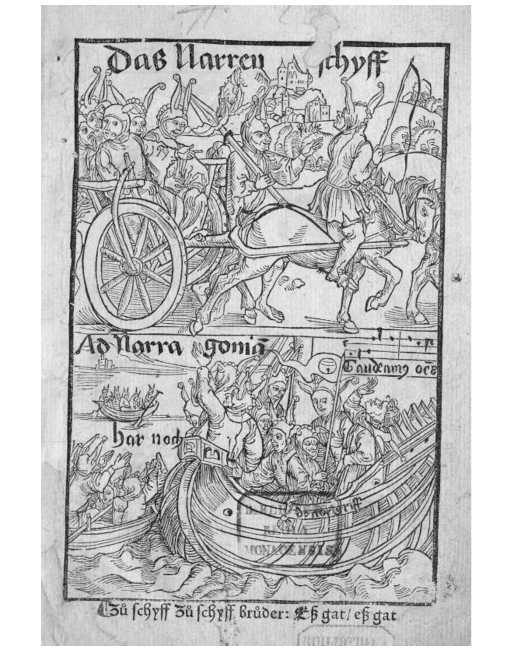 Das Narren schyff
Ad Narragoniā
Gaudeamꝰ oēs
har noch
MONACENSIS
Zů schyff Zů schyff brůder: Eß gat/ eß gat